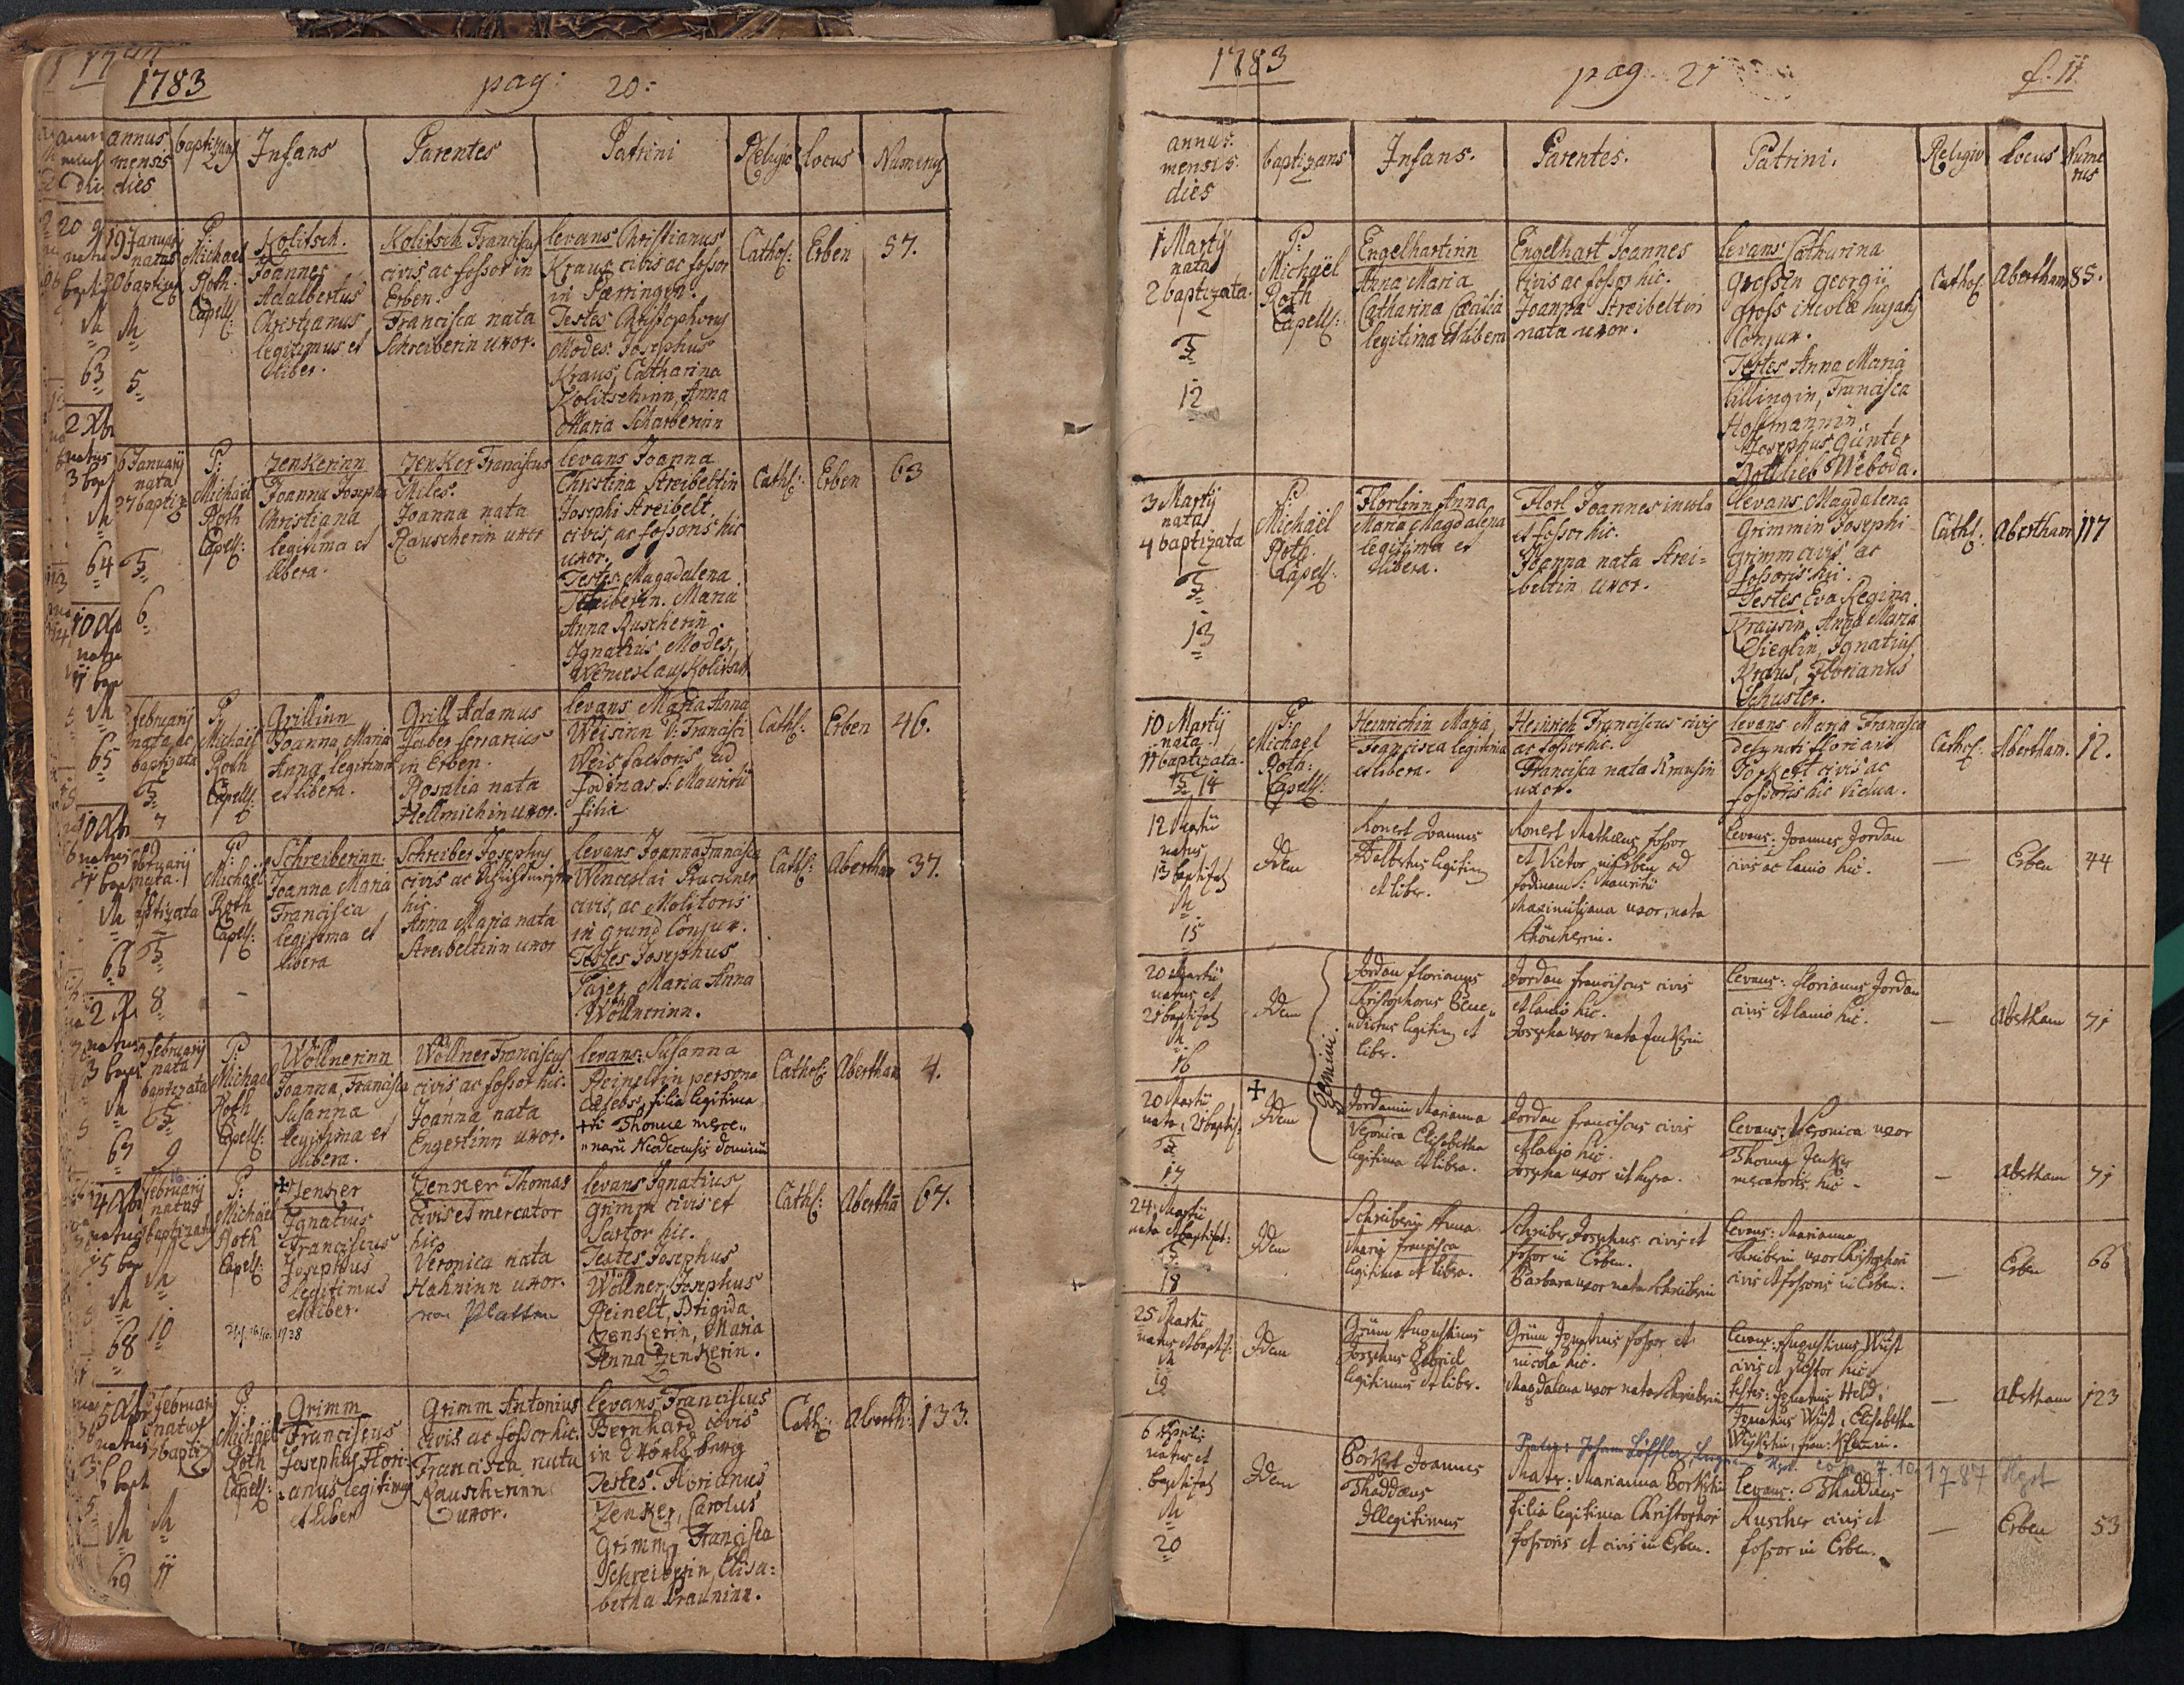 1783
pag: 20:
annus
mensis
dies
baptizans
Infans
Parentes
Patrini
Religio
Locus
Numerus
19 Januarij
natus
20 baptiz
M
5
P:
Michael
Roth
Capell:
Kolitsch.
Joannes
Adalbertus
Christianus
legitimus et
liber.
Kolitsch Franciscus
civis ac fossor in
Erben.
Francisca nata
Schreiberin uxor.
levans Christianus
Kraus civis ac fossor
in
Testes Christophorus
Modes. Josephus
Kraus, Catharina
Kolitschinn, Anna
Maria Scharberinn
Cathol:
Erben
57.
6 Januarij
nata
27 baptiz
F
6
P:
Michaël
Roth
Capell:
Zenkerinn
Joanna Josepha
Christiana
legitima et
libera.
Zenker Franciscus
Miles.
Joanna nata
Rauscherin uxor
levans Joanna
Christina Streibeltin
Josephi Streibelt,
civis, ac fossoris hic
uxor.
Testes Magadalena
Schreiberin. Maria
Anna Ruscherin
Ignatius Modes,
Wenceslaus Kolitsch
Cathl:
Erben
63
februarij
nata, ac
baptizata
F
7
P:
Michaël
Roth
Capell:
Grillinn
Joanna Maria
Anna legitima
et libera.
Grill Adamus
faber ferrarius
in Erben.
Rosalia nata
Hellmichin uxor.
levans Maria Anna
Weisinn D: Francisci
Weis factoris ad
Fodinas S: Mauritii
filia
Cathl:
Erben
46.
februarij
nata.
baptizata
F
8
P
Michaël
Roth
Capell:
Schreiberinn.
Joanna Maria
Francisca
legitima et
libera
Schreiber Josephus
civis ac
hic.
Anna Maria nata
Streibeltinn uxor
levans Joanna Francisca
Wenceslai Ruschner
civis, ac Molitoris
in grund Conjux.
Testes Josephus
Pajer, Maria Anna
Wöllnerinn.
Cathl:
Abertham
37.
februarij
nata
baptizata
F
9
P:
Michael
Roth
Capell:
Wöllnerinn
Joanna, Francisca
Susanna
legitima et
libera.
Wöllner Franciscus
civis, ac fossor hic.
Joanna nata
Engertinn uxor.
levans: Susanna
Reineltin persona
cælebs, filia legitima
Thomæ merce„
„narii Neodecensis dominii
Cathol:
Abertham
4.
februarij
natus
baptizatus
M
10
P:
Michaël
Roth
Capell:
Zenker
Ignatius
Franciscus
Josephus
legitimus
et liber.
Zenker Thomas
civis et mercator
hic.
Veronica nata
Hahninn uxor.
von Platten
levans Ignatius
Grimm civis et
Sartor hic.
Testes Josephus
Wöllner, Josephus
Reinelt, Brigida
Zenkerin, Maria
Anna Zenkerin.
Cathl:
Aberthã
67.
februarij
natus
bapti
M
11
P:
Michaël
Roth
Capell:
Grimm
Franciscus
Josephus Flori-
anus legitimus
et liber
Grimm Antonius
civis ac fossor hic.
Francisca nata
Rauscherinn
uxor.
levans Franciscus
Bernhard civis
in
Testes. Florianus
Zenker, Carolus
Grimm, Francisca
Schreiberin, Elisa:
betha Prauninn.
Cathl:
Aberth:
133.
1783
pag 21
f. 11
annus.
mensis.
dies
baptizans
Infans.
Parentes.
Patrini.
Religio
Locus
Nume
rus
1 Martij
nata
2 baptizata.
F
12
P:
Michaël
Roth
Capell:
Engelhartinn
Anna Maria
Catharina Cæcilia
legitima et libera
Engelhart Joannes
civis ac fossor hic.
Joanna Streibeltin
nata uxor.
levans Catharina
Grossin georgii
gross incolæ hujatis
Conjux.
Testes Anna Maria
Ullingin, Francisca
Hoffmannin.
Josephus Günter
Gottlieb Weboda.
Cathol.
Abertham
85.
3 Martij
nata
4 baptizata
F
13
P
Michaël
Roth.
Capell:
Florlinn Anna
Maria Magdalena
legitima et
libera.
Florl Joannes incola
et fossor hic.
Joanna nata Strei=
beltin uxor.
levans Magdalena
Grimmin Josephi
Grimm civis ac
fossoris hic.
Testes Eva Regina
Krausin, Anna Maria
Zieglin, Ignatius
Kraus, Florianus
Schuster.
Cathl:
Abertham
117
10 Martij
nata
11 baptizata.
F 14
P
Michael
Roth:
Capell:
Heinrichin Maria
Francisca legitima
et libera.
Heinrich Franciscus civis
ac fossor hic.
Francisca nata Krausin
uxor.
levans Maria Francisca
defuncti floriani
Porkert civis ac
fossoris hic vidua.
Cathol:
Abertham.
12.
12 Martii
natus
13 baptizat
M
15
Idem
Konert Joannes
Adalbertus legitim
et liber.
Konert Mathæus fossor
et Victor in Erben ad
fodinam S: Mauritii
Maximiliana uxor, nata
levans: Joannes Jordan
civis ac lanio hic.
—
Erben
44
20 Martii
natus et
21 baptizat
M
16
Idem
Gemini.
Jordan florianus
Christophorus Bene„
„dictus legitim et
liber.
Jordan franciscus civis
et lanio hic.
Josepha uxor nata Zenkerin
levans: florianus Jordan
civis et lanio hic.
—
Abertham
71
20 Martii
nata, 21 baptiz
F
17
Idem
Jordanin Marianna
Veronica Elisabetha
legitima et libera.
Jordan franciscus civis
et lanio hic.
Josepha uxor ut supra.
levans: Veronica uxor
Thomæ Zenker
mercatoris hic
—
Abertham
71
24 Martii
nata et baptizat:
F
18
Idem
Schreiberin Anna
Maria francisca
legitima et libera.
Schreiber Josephus civis et
fossor in Erben.
Barbara uxor nata Schreiberin
levans: Marianna
Schreiberin uxor Christophori
civis et fossoris in Erben.
—
Erben
66
25 Martii
natus et baptiz:
M
19
Idem
Grüm Augustinus
Josephus Gabriel
legitimus et liber.
Grüm Ignatius fossor et
incola hic.
Magdalena uxor nata Schreiberin
levans: Augustinus Wüst
civis et pistor hic.
testes: Ignatius Held,
Ignatius Wüst, Elisabetha
—
Abertham
123
6 Aprilis
natus et
baptizat
M
20
Idem
Porkert Joannes
Thaddæus
Illegitimus
Pater: Johann Löffler
cop. 7.10.1787
Mater: Marianna Porkertin
filia legitima Christophori
fossoris et civis in Erben.
levans: Thaddæus
Ruscher civis et
fossor in Erben.
—
Erben
53